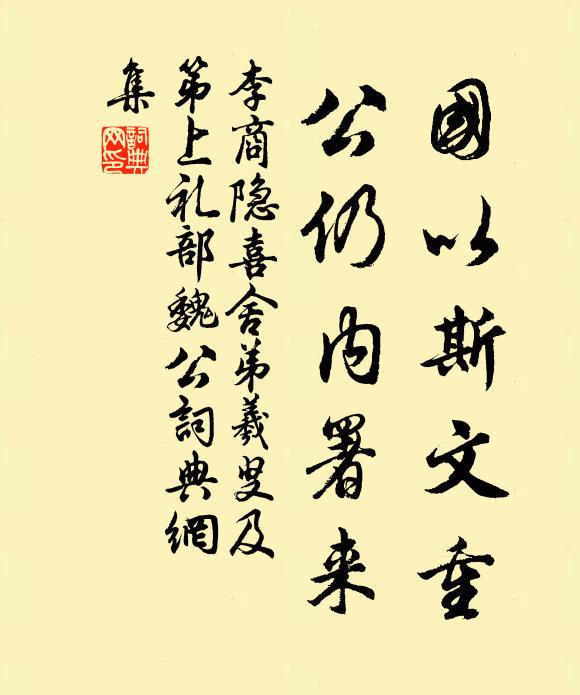 國以斯文重
公仍内署来
李商隐喜舍弟羲叟及
第上礼部魏公詞典網
集
詞典
网印